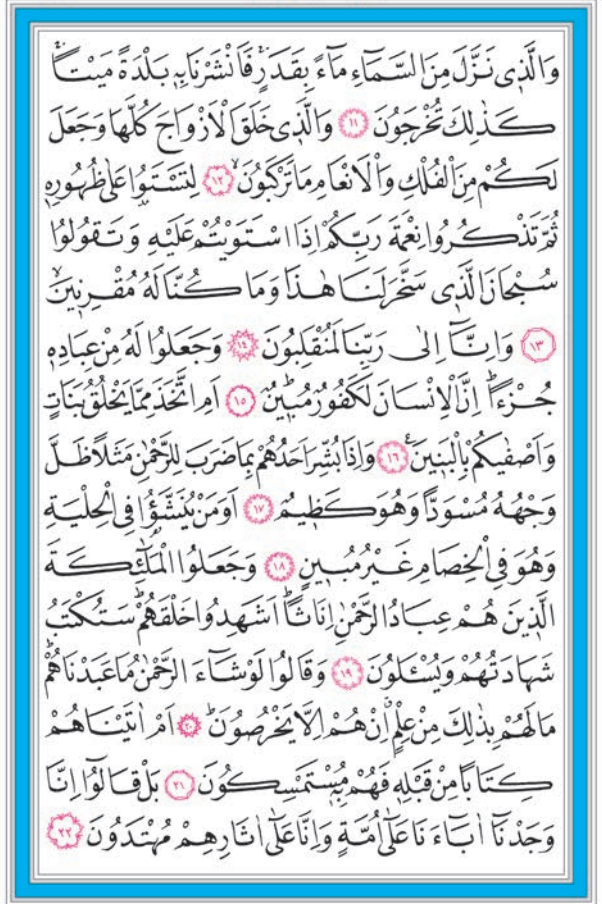 وَالَّذ۪ي نَزَّلَ مِنَ السَّمَٓاءِ مَٓاءً بِقَدَرٍۚ فَاَنْشَرْنَا بِه۪ بَلْدَةً مَيْتاًۚ
كَذٰلِكَ تُخْرَجُونَ ﴿١١﴾ وَالَّذ۪ي خَلَقَ الْاَزْوَاجَ كُلَّهَا وَجَعَلَ
لَكُمْ مِنَ الْفُلْكِ وَالْاَنْعَامِ مَا تَرْكَبُونَۙ ﴿١٢﴾ لِتَسْتَوُ۫ا عَلٰى ظُهُورِه۪
ثُمَّ تَذْكُرُوا نِعْمَةَ رَبِّكُمْ اِذَا اسْتَوَيْتُمْ عَلَيْهِ وَتَقُولُوا
سُبْحَانَ الَّذ۪ي سَخَّرَ لَنَا هٰذَا وَمَا كُنَّا لَهُ مُقْرِن۪ينَۙ
﴿١٣﴾ وَاِنَّٓا اِلٰى رَبِّنَا لَمُنْقَلِبُونَ ﴿١٤﴾ وَجَعَلُوا لَهُ مِنْ عِبَادِه۪
جُزْءاًۜ اِنَّ الْاِنْسَانَ لَكَفُورٌ مُب۪ينٌۜ ﴿١٥﴾ اَمِ اتَّخَذَ مِمَّا يَخْلُقُ بَنَاتٍ
وَاَصْفٰيكُمْ بِالْبَن۪ينَ ﴿١٦﴾ وَاِذَا بُشِّرَ اَحَدُهُمْ بِمَا ضَرَبَ لِلرَّحْمٰنِ مَثَلاً ظَلَّ
وَجْهُهُ مُسْوَداًّ وَهُوَ كَظ۪يمٌ ﴿١٧﴾ اَوَمَنْ يُنَشَّؤُا فِي الْحِلْيَةِ
وَهُوَ فِي الْخِصَامِ غَيْرُ مُب۪ينٍ ﴿١٨﴾ وَجَعَلُوا الْمَلٰٓئِكَةَ
الَّذ۪ينَ هُمْ عِبَادُ الرَّحْمٰنِ اِنَاثاًۜ اَشَهِدُوا خَلْقَهُمْۜ سَتُكْتَبُ
شَهَادَتُهُمْ وَيُسْـَٔلُونَ ﴿١٩﴾ وَقَالُوا لَوْ شَٓاءَ الرَّحْمٰنُ مَا عَبَدْنَاهُمْۜ
مَا لَهُمْ بِذٰلِكَ مِنْ عِلْمٍۗ اِنْ هُمْ اِلَّا يَخْرُصُونَۜ ﴿٢٠﴾ اَمْ اٰتَيْنَاهُمْ
كِتَاباً مِنْ قَبْلِه۪ فَهُمْ بِه۪ مُسْتَمْسِكُونَ ﴿٢١﴾ بَلْ قَالُٓوا اِنَّا
وَجَدْنَٓا اٰبَٓاءَنَا عَلٰٓى اُمَّةٍ وَاِنَّا عَلٰٓى اٰثَارِهِمْ مُهْتَدُونَ ﴿٢٢﴾